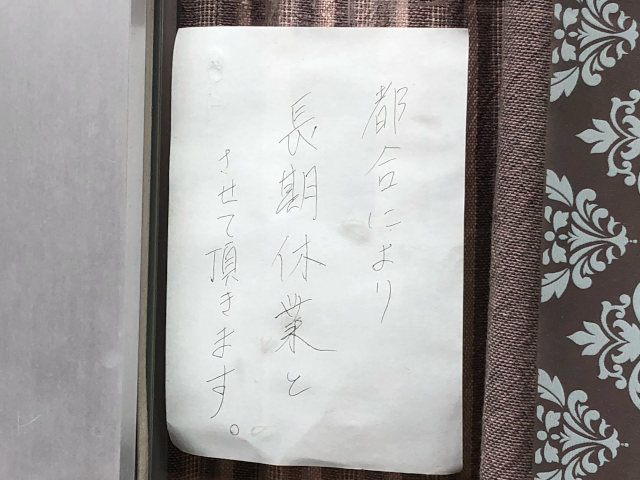 都合により
長期休業と
させて頂きます。